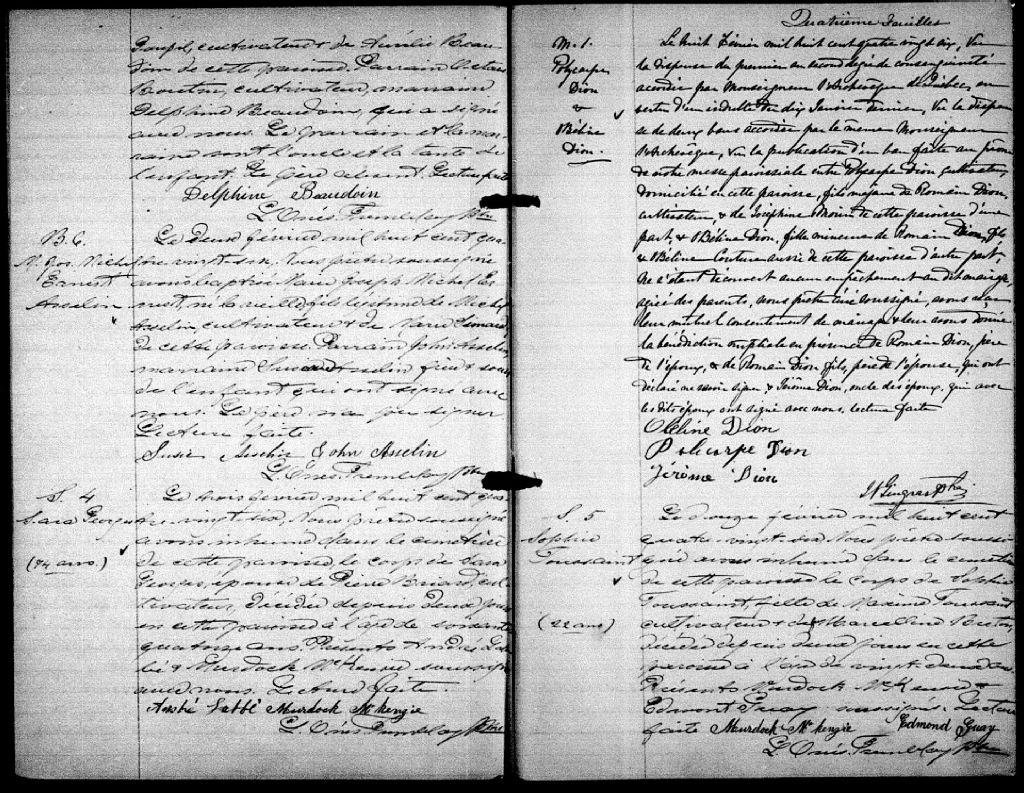 Goupil, cultivateur & de Aurélie Beau-
doin de cette paroisse. Parrain Octave
Boutin, cultivateur, marraine
Delphine Beaudoin, qui a signé
avec nous. Le parrain et la mar-
raine sont l'oncle et la tante de
l'enfant. Le père absent. Lecture faite
Delphine Beaudoin
L. Onés. Tremblay Ptre
B. 6.
M. Jos. Michel
Ernest
Asselin
Le deux février mil huit cent qua-
tre vingt six. Nous prêtre soussigné
avons baptisé Marie Joseph Michel Er-
nest, né la veille, fils légitime de Michel
Asselin, cultivateur & de Marie Simard,
de cette paroisse. Parrain John Asselin,
marraine Susie Asselin frère & soeur
de l'enfant qui ont signé avec
nous. Le père n'a pu signer
Lecture faite.
Susie Asselin John Asselin
L. Onés. Tremblay Ptre
S. 4
Sara Georges
(74 ans.)
Le trois février mil huit cent qua-
tre vingt six, Nous Prêtre soussigné
avons inhumé dans le cimetière
de cette paroisse le corps de Sara
Georges, épouse de Pierre Briard cul-
tivateur, décédée depuis deux jours
en cette paroisse à l'âge de soixante
quatorze ans. Présents André Lab-
bé & Murdock McKenzie soussignés
avec nous. Lecture faite.
André Labbé Murdock McKenzie
L. Onés. Tremblay Ptre
Quatrième Feuillet
M. 1.
Polycarpe
Dion
&
Obéline
Dion.
Le huit Février mil huit cent quatre vingt six, Vu
la dispense du premier au second degré de consanguinité
accordée par Monseigneur l'Archevêque de Québec, en
vertu d'un indult du dix Janvier dernier, Vu la dispen-
se de deux bans accordée par le même Monseigneur
l'Archevêque, vu la publication d'un ban faite au prône
de notre messe paroissiale entre Polycarpe Dion cultivateur,
domicilié en cette paroisse, fils majeur de Romain Dion,
cultivateur, & de Joséphine Morin de cette paroisse d'une
part, & Obéline Dion, fille mineure de Romain Dion, fils
& Obéline Couture aussi de cette paroisse d'autre part.
Ne s'étant découvert aucun empêchement au dit mariage,
agréé des parents, nous prêtre curé soussigné, avons reçu
leur mutuel consentement de mariage & leur avons donné
la bénédiction nuptiale en présence de Romain Dion, père
de l'époux, & de Romain Dion fils, père de l'épouse, qui ont
déclaré ne savoir signer & Jérôme Dion, oncle des époux, qui avec
les dits époux ont signé avec nous, lecture faite
Obéline Dion
Policarpe Dion
Jérôme Dion
Gingras Ptre
S. 5
Sophie
Toussaint
(22 ans)
Le douze février mil huit cent
quatre vingt six Nous prêtre soussi-
gné avons inhumé dans le cimetière
de cette paroisse le corps de Sophie
Toussaint, fille de Maxime Toussaint
cultivateur & de Marcelline
décédée depuis deux jours en cette
paroisse à l'âge de vingt deux ans
Présents Murdock McKenzie &
Edmont Guay soussignés. Lecture
faite Murdock McKenzie Edmond Guay
L. Onés. Tremblay Ptre